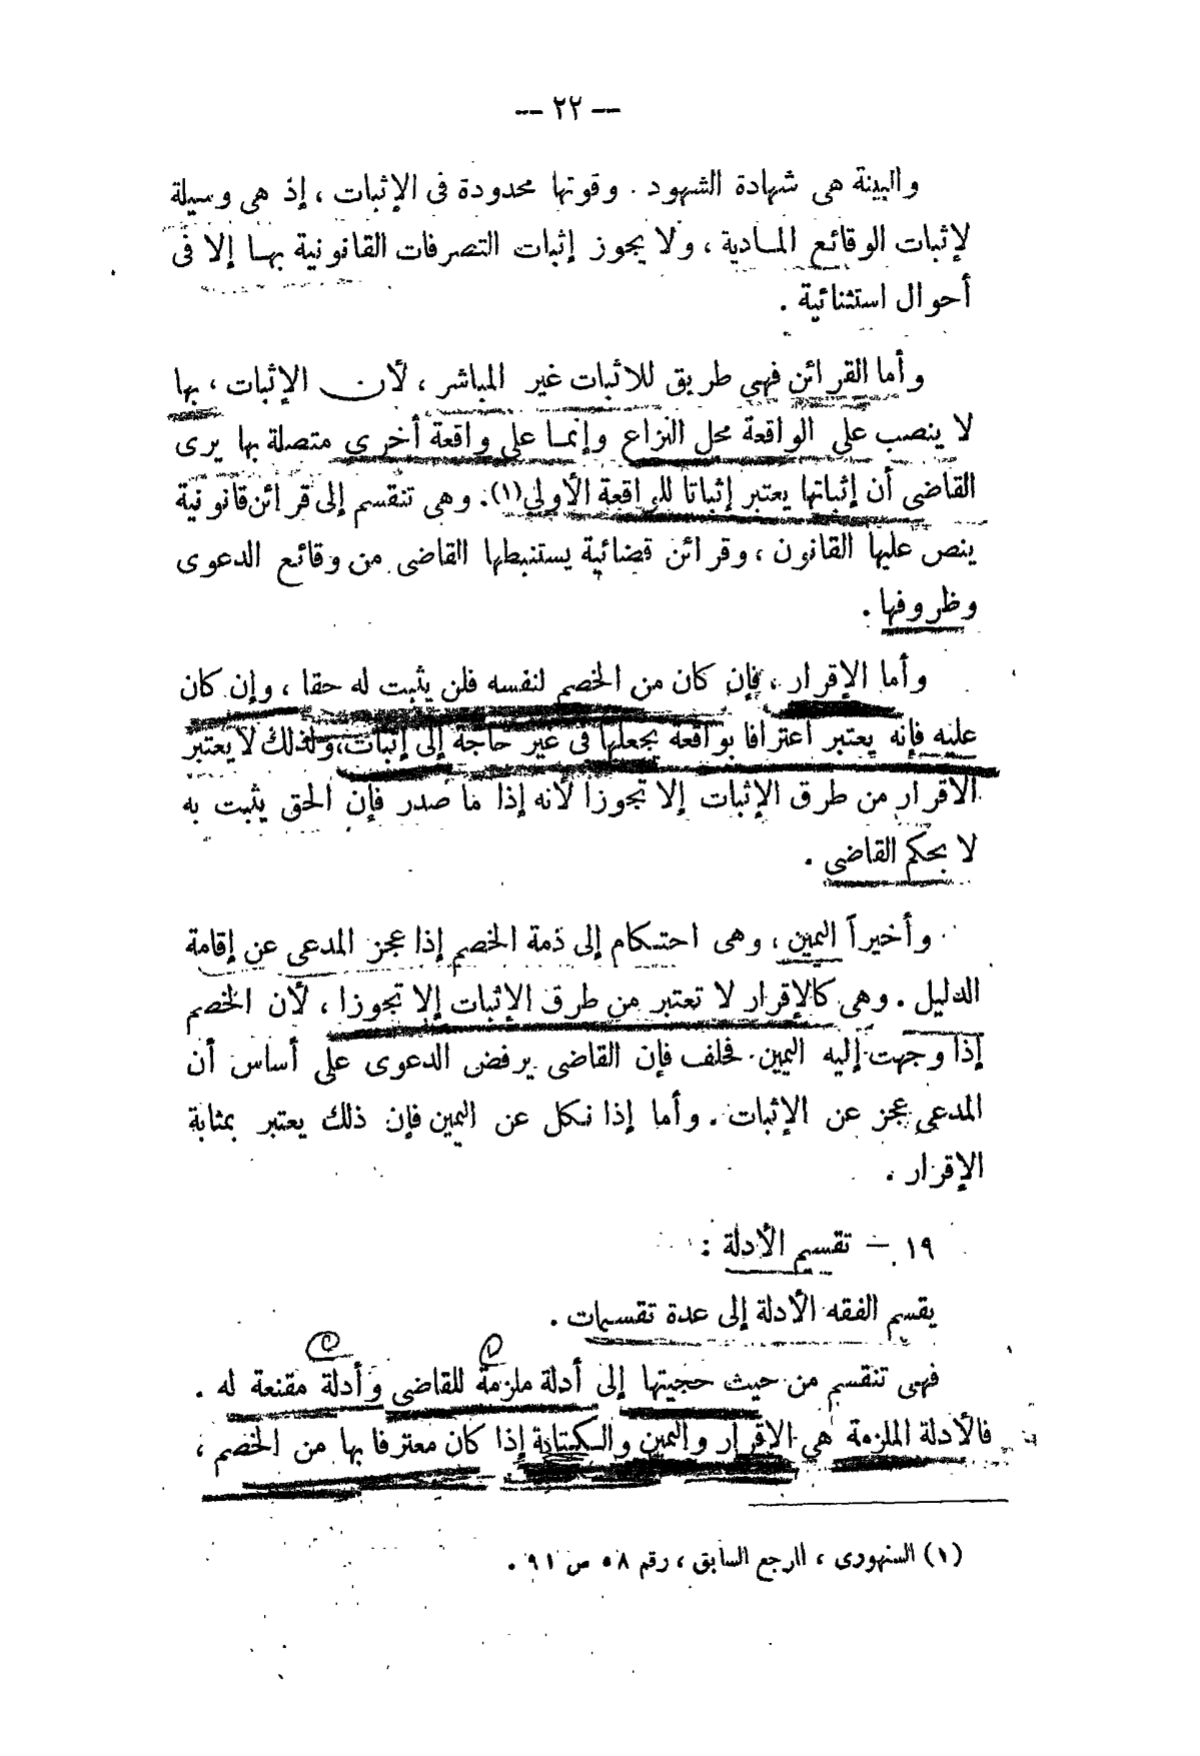 — ٢٢ —
والبينة هى شهادة الشهود . وقوتها محدودة فى الإثبات ، إذ هى وسيلة
لإثبات الوقائع المادية ، ولا يجوز إثبات التصرفات القانونية بها إلا فى
أحوال استثنائية .
وأما القرائن فهى طريق للاثبات غير المباشر ، لأن الإثبات ، بها
لا ينصب على الواقعة محل النزاع وإنما على واقعة أخرى متصلة بها يرى
القاضى أن إثباتها يعتبر إثباتا للواقعة الأولى (١) . وهى تنقسم إلى قرائن قانونية
ينص عليها القانون ، وقرائن قضائية يستنبطها القاضى من وقائع الدعوى
وظروفها .
وأما الإقرار ، فإن كان من الخصم لنفسه فلن يثبت له حقا ، وإن كان
عليه فإنه يعتبر اعترافا بواقعة يجعلها فى غير حاجة إلى إثبات، ولذلك لا يعتبر
الاقرار من طرق الإثبات إلا تجوزا لأنه إذا ما صدر فإن الحق يثبت به
لا بحكم القاضى .
وأخيراً اليمين ، وهى احتكام إلى ذمة الخصم إذا عجز المدعى عن إقامة
الدليل . وهى كالإقرار لا تعتبر من طرق الإثبات إلا تجوزا ، لأن الخصم
إذا وجهت إليه اليمين فحلف فإن القاضى يرفض الدعوى على أساس أن
المدعى عجز عن الإثبات . وأما إذا نكل عن اليمين فإن ذلك يعتبر بمثابة
الإقرار .
١٩ — تقسيم الأدلة :
يقسم الفقه الأدلة إلى عدة تقسيمات .
فهى تنقسم من حيث حجيتها إلى أدلة ملزمة للقاضى وأدلة مقنعة له .
فالأدلة الملزمة هى الإقرار واليمين والكتابة إذا كان معترفا بها من الخصم ،
(١) السنهورى ، المرجع السابق ، رقم ٥٨ ص ٩١ .